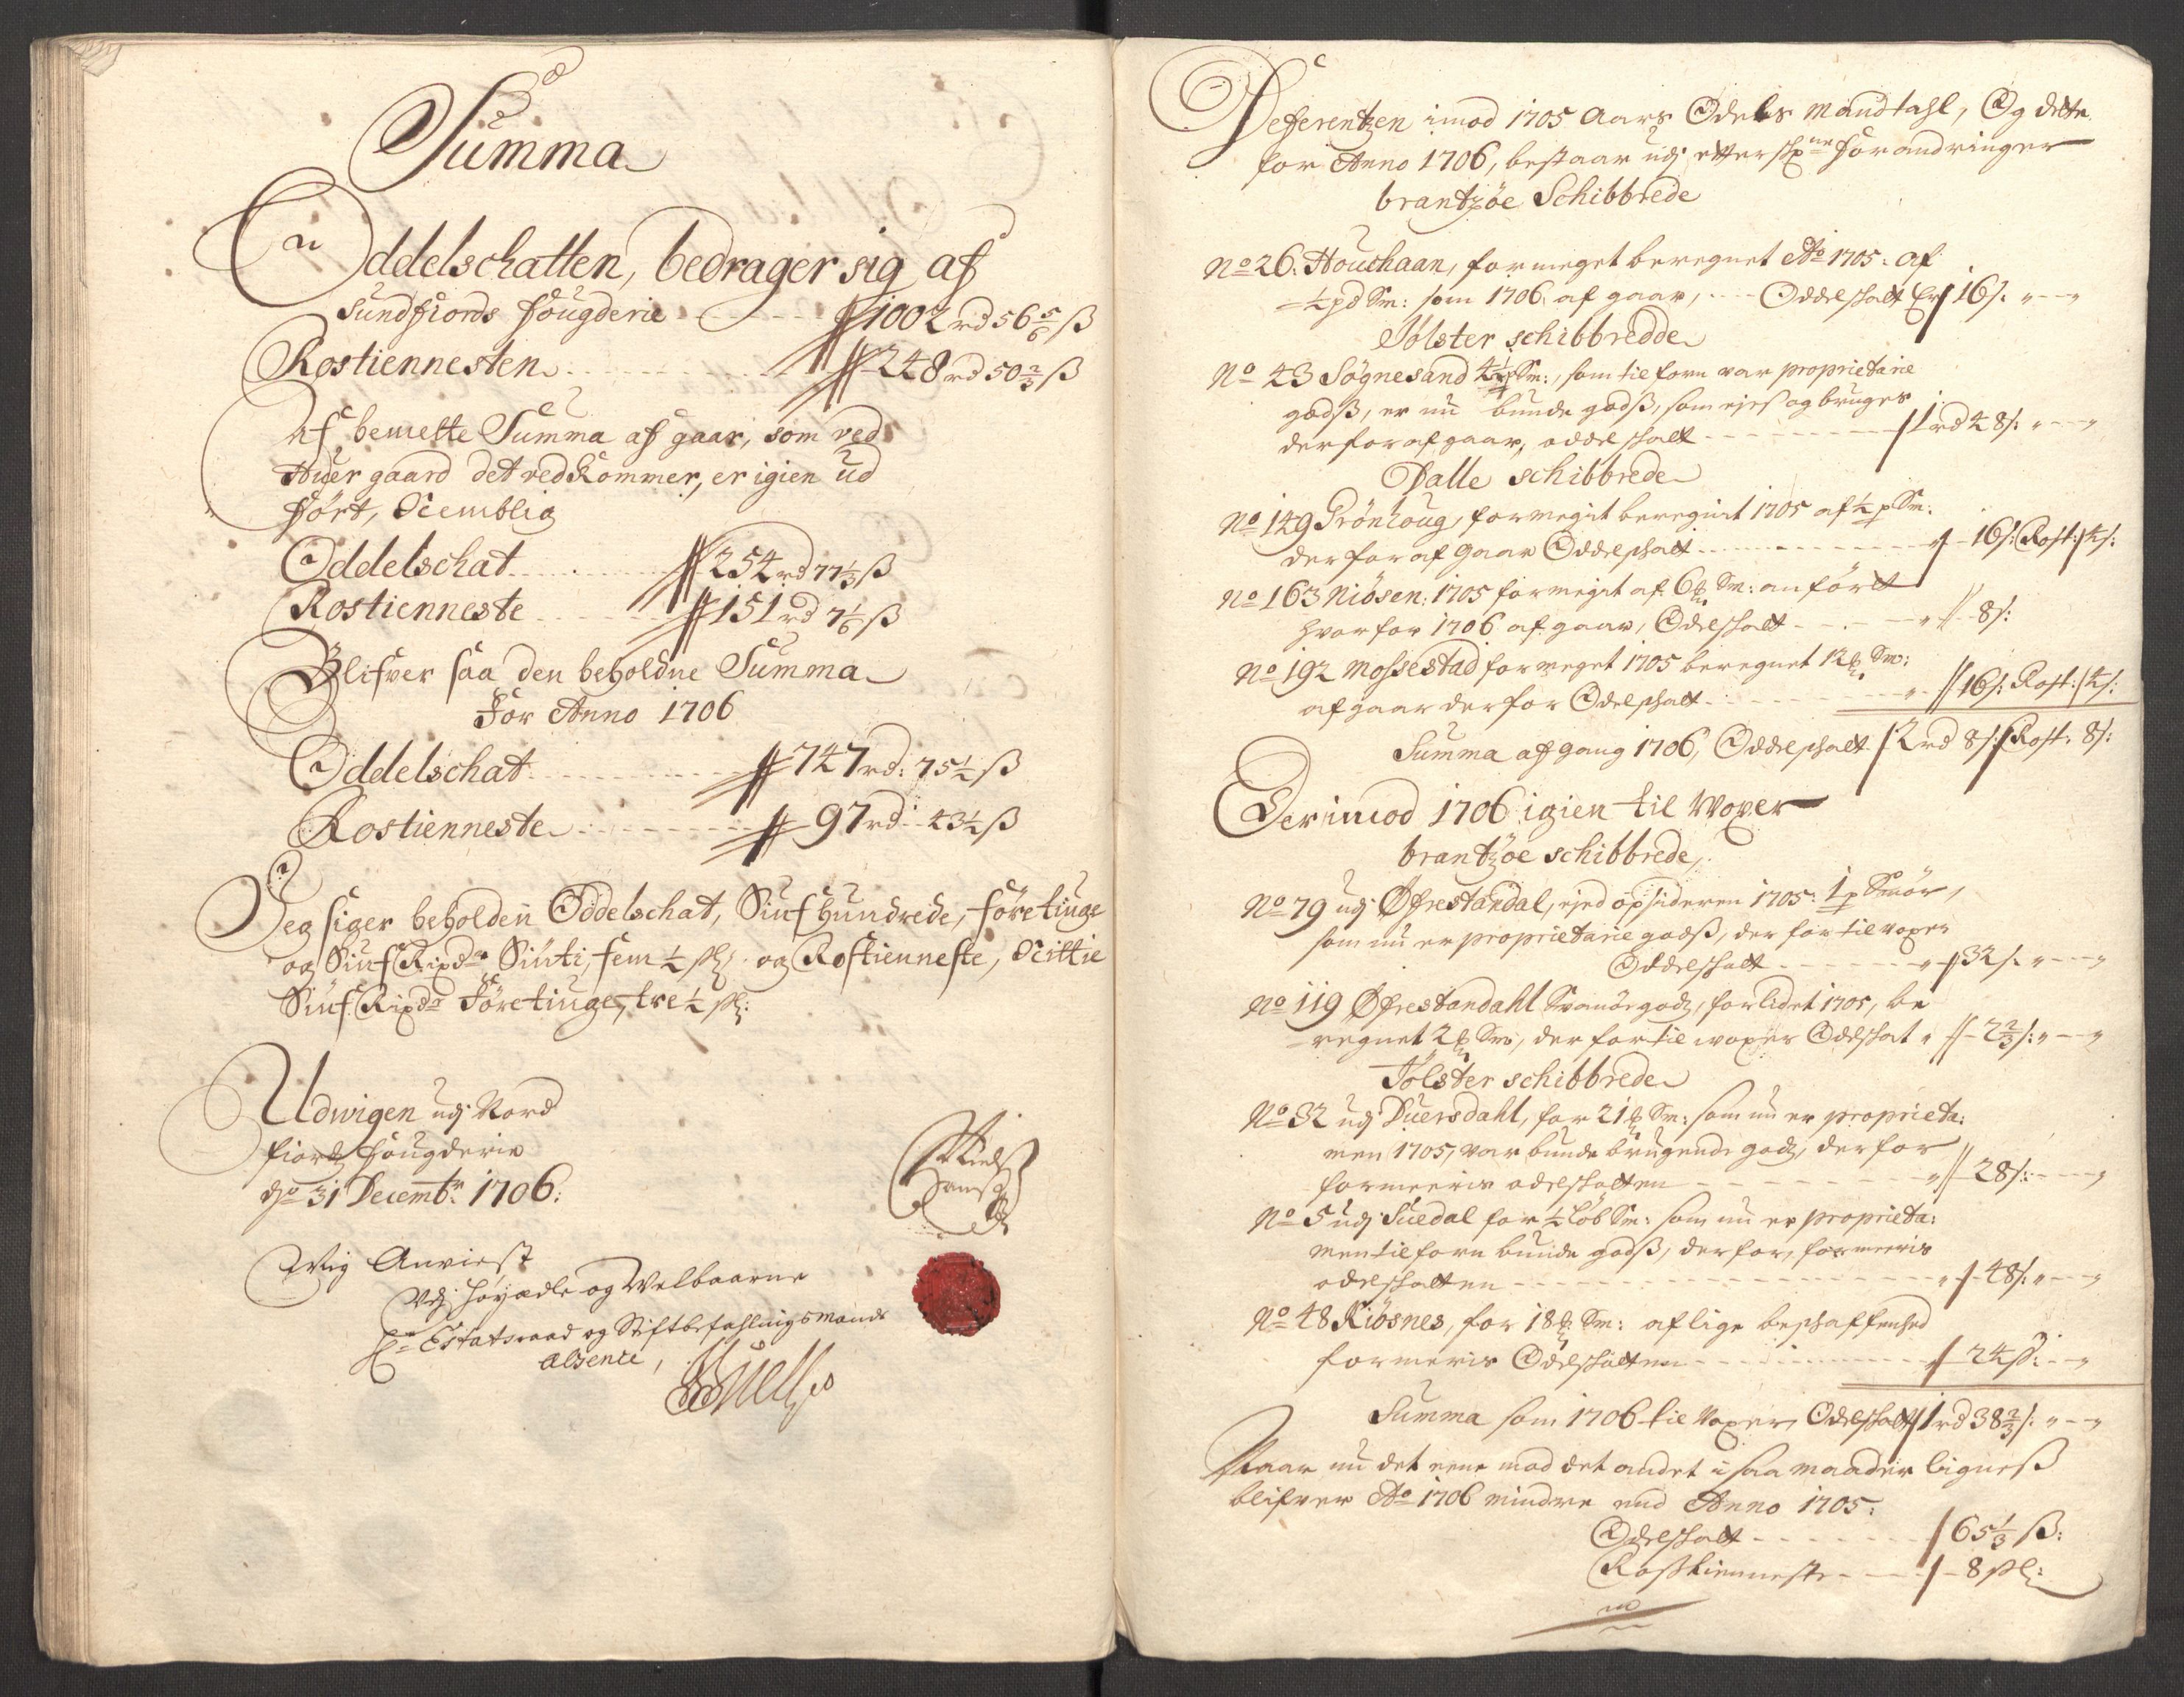 Summa
Oddelschatten, bedrager sig af
Sundfiords fougderie - - - - 1002 rd 56 5/6 ß
Rostiennesten - - - - 248 rd 50 2/3 ß
Af bemelte Summa af gaar, som ved
Huer gaard det vedkommer, er igien ud
ført, Nemblig
Oddelschat - - - - 254 rd 77 1/3 ß
Rostienneste - - - - 151 rd 7 1/6 ß
Blifver saa den beholdne Summa
For Anno 1706
Oddelschat - - - - 747 rd: 75 1/2 ß
Rostienneste - - - - 97 rd 43 1/2 ß
Jeg siger beholden Oddelschat, Siuf hundrede, føretiuge
og Siuf Rixdr Siuti, fem 1/2 sk: og Rostienneste, Nittie
Siuf Rixdr Føretiuge, tre 1/2 sk:
Udwigen udj Nord
fiords fougderie
dn 31 Decembr 1706:
Niels
Hansen
Mig Anviist
Udj høyædle og Welbaarne
Hr Estatsraad og Stiftbefahlingsmands
absence,
Deferentzen imod 1705 Aars Odels Mandtahl, Og dette
for Anno 1706, bestaar udj efterschne forandringer
brantzøe Schibbrede
No 26. Houchaan, formeget beregnet Ao 1705. af
1/2 pd Sm: som 1706 af gaar, - - Oddelschatt 16 s: " - "
Jølster schibbredde
No 43 Søgnesand Sm:, som tilforn var proprietarie
godß, er nu bunde godß, som ejes og bruges
derfor afgaar, oddelschatt - - - - 1 rd 48 s: " - "
Dalle schibbrede
No 149 Grönhoug, formegit beregnit 1705 af 1/2 p Sm:
derfor af gaar Oddelschatt - - - - " 16 s: Rost: 4 s:
No 163 Niösen: 1705 formegit af 6 Sm: anført
hvorfor 1706 af gaar, Odelschatt - - - " 8 s:
No 192 Mossestad formeget 1705 beregnet 12 Sm:
afgaar derfor Odelschatt - - - - " 16 s: Rost: 4 s:
Summa afgang 1706, Oddelschatt 2 rd 8 s: Rost: 8 s:
Derimod 1706 igien til Voxer
brantzöe schibbrede,
No 79 udj Öfrestandal, ejed opsideren 1705: 1 p Smør,
som nu er proprietarie godß, der for tilvoxer
Oddelschatt - - - - " 32 s: " - "
No 119 Öfrestandahl Svanöe godz, for lidet 1705, be
regnet 2 Sm, der for til voxer Odelschat " 2 2/3 s: " - "
Jölster schibbrede
No 32 udj Duersdahl, for 21 Sm: som nu er proprieta:
men 1705, var bunde brugende godz, derfor
formeeris odelschatten - - - - " 28 s: - - "
No 5 udj Suedal for 1/2 løb Sm: som nu er proprieta:
men tilforn bunde godß, derfor, formeeris
odelschatten - - - - " 48 s: " - "
No 48 Kiösnes, for 18 Sm: af lige beschaffenhed
formeris Odelschatten - - - - " 24 ß: - - "
Summa som 1706 til Voxer, Odelschatt 1 rd 38 2/3 s: " - "
Naar nu det eene mod det andet i saa maader ligneß
blifver Ao 1706 mindre end Anno 1705:
Odelschatt - - - - 65 1/3 ß:
Rosstienneste - - - 8 sk: